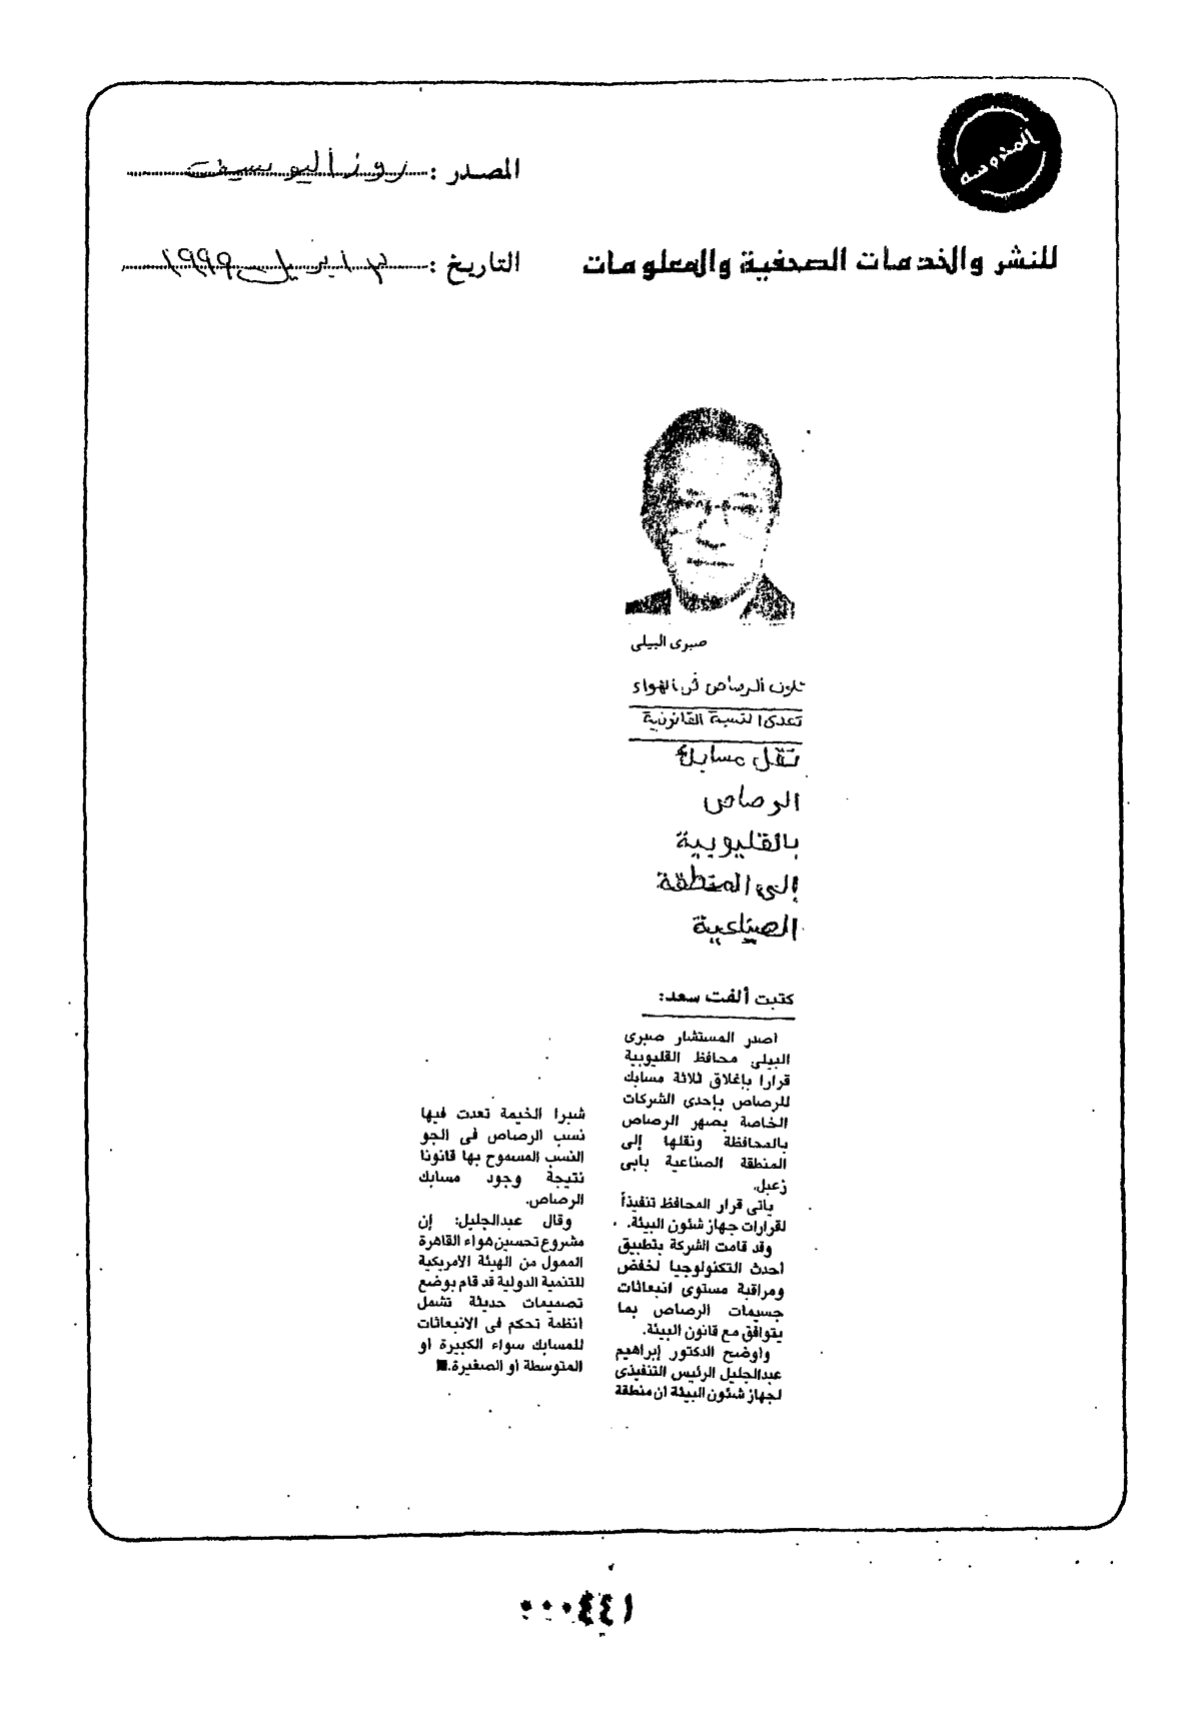 المدوسه
المصدر : روز اليوسف
للنشر والخدمات الصحفية والمعلومات
التاريخ : ٣ ابريل ١٩٩٩
صبرى البيلى
تلوث الرصاص فى الهواء
تعدى النسبة القانونية
نقل مسابك
الرصاص
بالقليوبية
إلى المنطقة
الصناعية
كتبت ألفت سعد:
أصدر المستشار صبرى
البيلى محافظ القليوبية
قرارا بإغلاق ثلاثة مسابك
للرصاص بإحدى الشركات
الخاصة بصهر الرصاص
بالمحافظة ونقلها إلى
المنطقة الصناعية بأبى
زعبل.
يأتى قرار المحافظ تنفيذاً
لقرارات جهاز شئون البيئة.
وقد قامت الشركة بتطبيق
أحدث التكنولوجيا لخفض
ومراقبة مستوى انبعاثات
جسيمات الرصاص بما
يتوافق مع قانون البيئة.
وأوضح الدكتور إبراهيم
عبدالجليل الرئيس التنفيذى
لجهاز شئون البيئة أن منطقة
شبرا الخيمة تعدت فيها
نسب الرصاص فى الجو
النسب المسموح بها قانونا
نتيجة وجود مسابك
الرصاص.
وقال عبدالجليل: إن
مشروع تحسين هواء القاهرة
الممول من الهيئة الأمريكية
للتنمية الدولية قد قام بوضع
تصميمات حديثة تشمل
أنظمة تحكم فى الانبعاثات
للمسابك سواء الكبيرة أو
المتوسطة أو الصغيرة.■
٠٠٠٤٤١